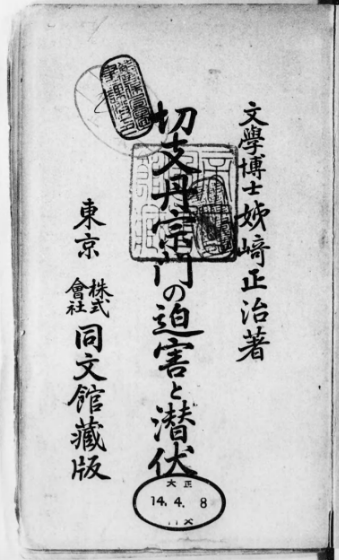 文學博士 姊崎正治著
切支丹宗門の迫害と潜伏
東京 株式會社 同文館藏版
大正
14.4.8